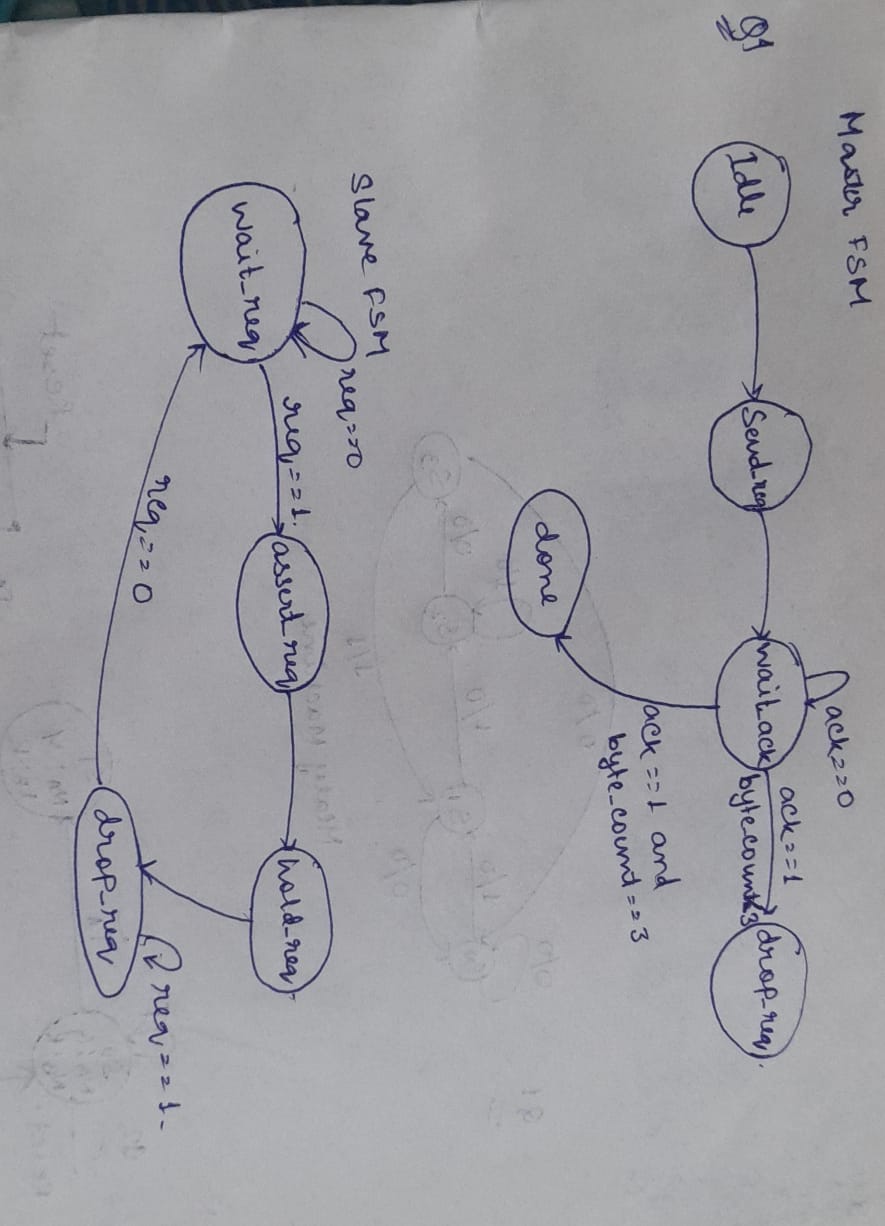 Q4
Master FSM
Idle
Send_req
wait_ack
ack==0
ack==1
bytecount<3
drop_req
ack==1 and
byte_count==3
done
Slave FSM
wait_req
req==0
req==1
assert_req
hold_req
drop_req
req==1
req==0